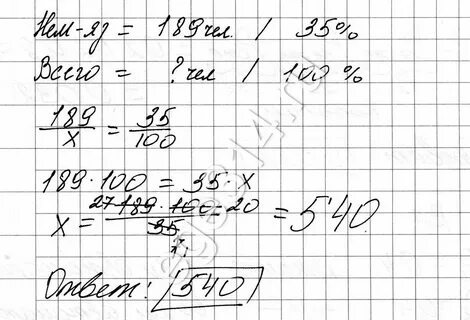 Нем-яз = 189 чел / 35%
Всего = ? чел / 100 %
189/x = 35/100
189 · 100 = 35 · x
x = 27 189 · 100 = 20 / 35 7 = 540
Ответ: 540